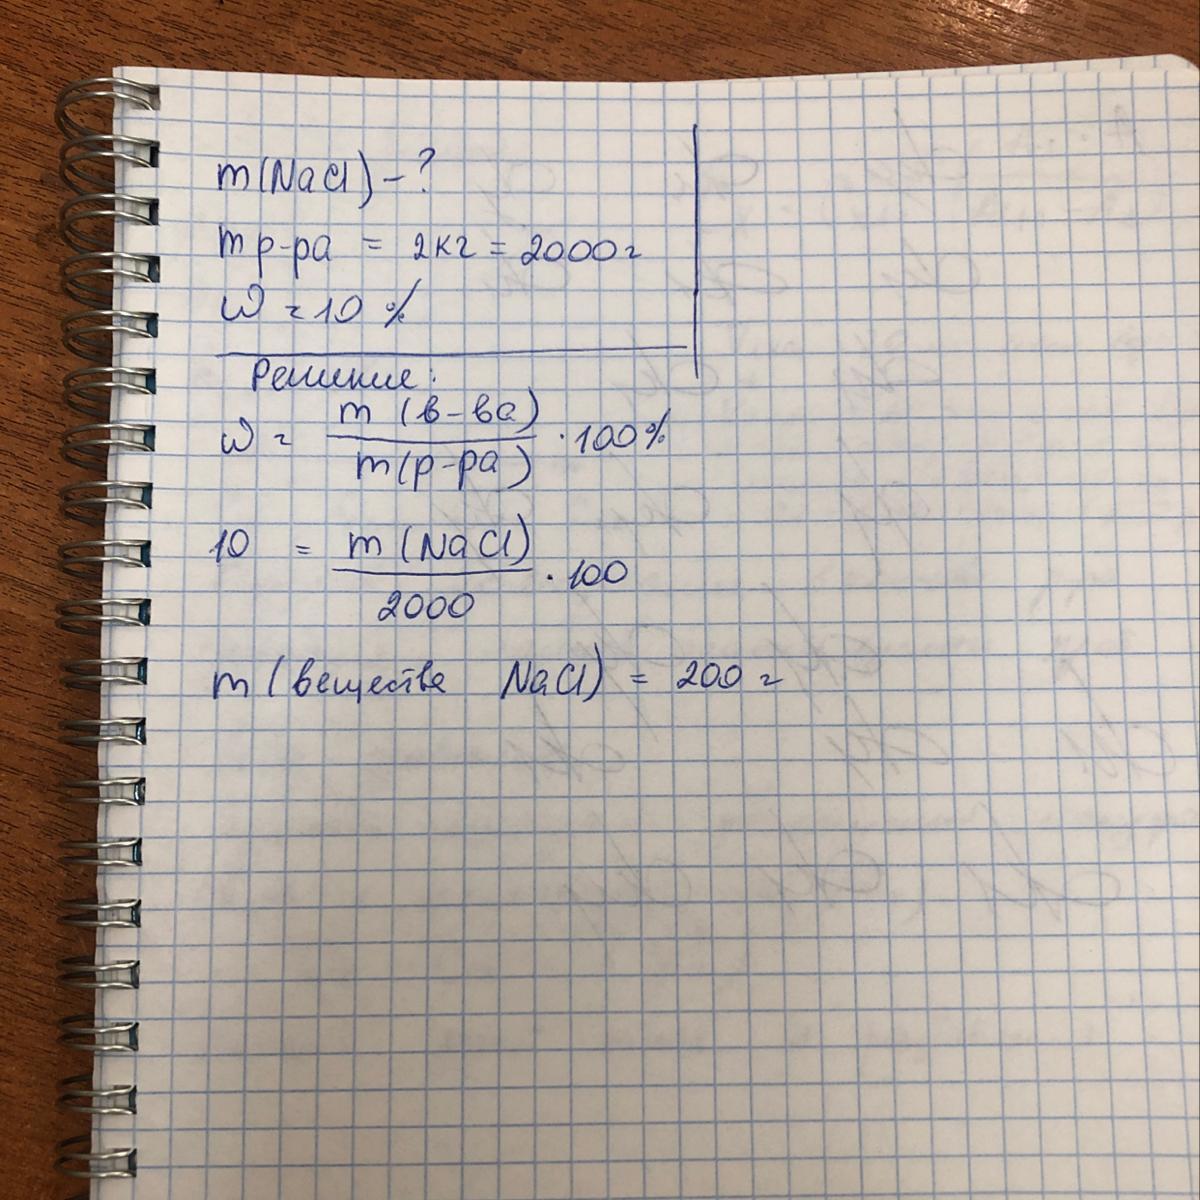 m(NaCl) - ?
m р-ра = 2кг = 2000г
ω = 10 %
Решение:
ω = m (в-ва) / m(р-ра) · 100%
10 = m (NaCl) / 2000 · 100
m (вещества NaCl) = 200 г